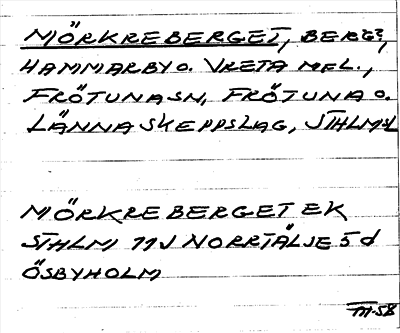 MÖRKREBERGET, BERG,
HAMMARBY O. VRETA MFL.,
FRÖTUNA SN, FRÖTUNA O.
LÄNNA SKEPPSLAG, STHLMSL
MÖRKREBERGET EK
STHLM 11J NORRTÄLJE 5 d
ÖSBYHOLM